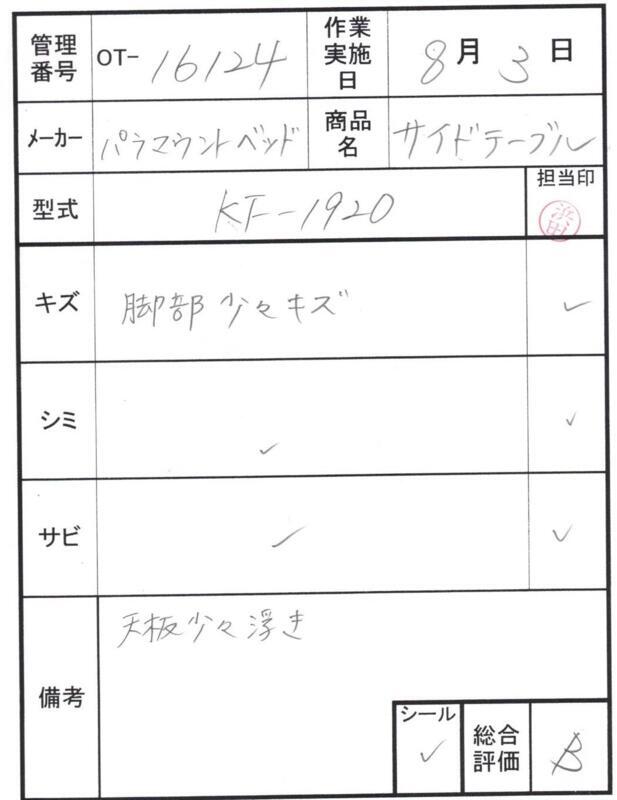 管理番号 OT-16124 作業実施日 8月3日
メーカー パラマウントベッド 商品名 サイドテーブル
型式 KF-1920 担当印
キズ 脚部 少々キズ ✓
シミ ✓ ✓
サビ ✓ ✓
備考 天板少々浮き
シール ✓ 総合評価 B